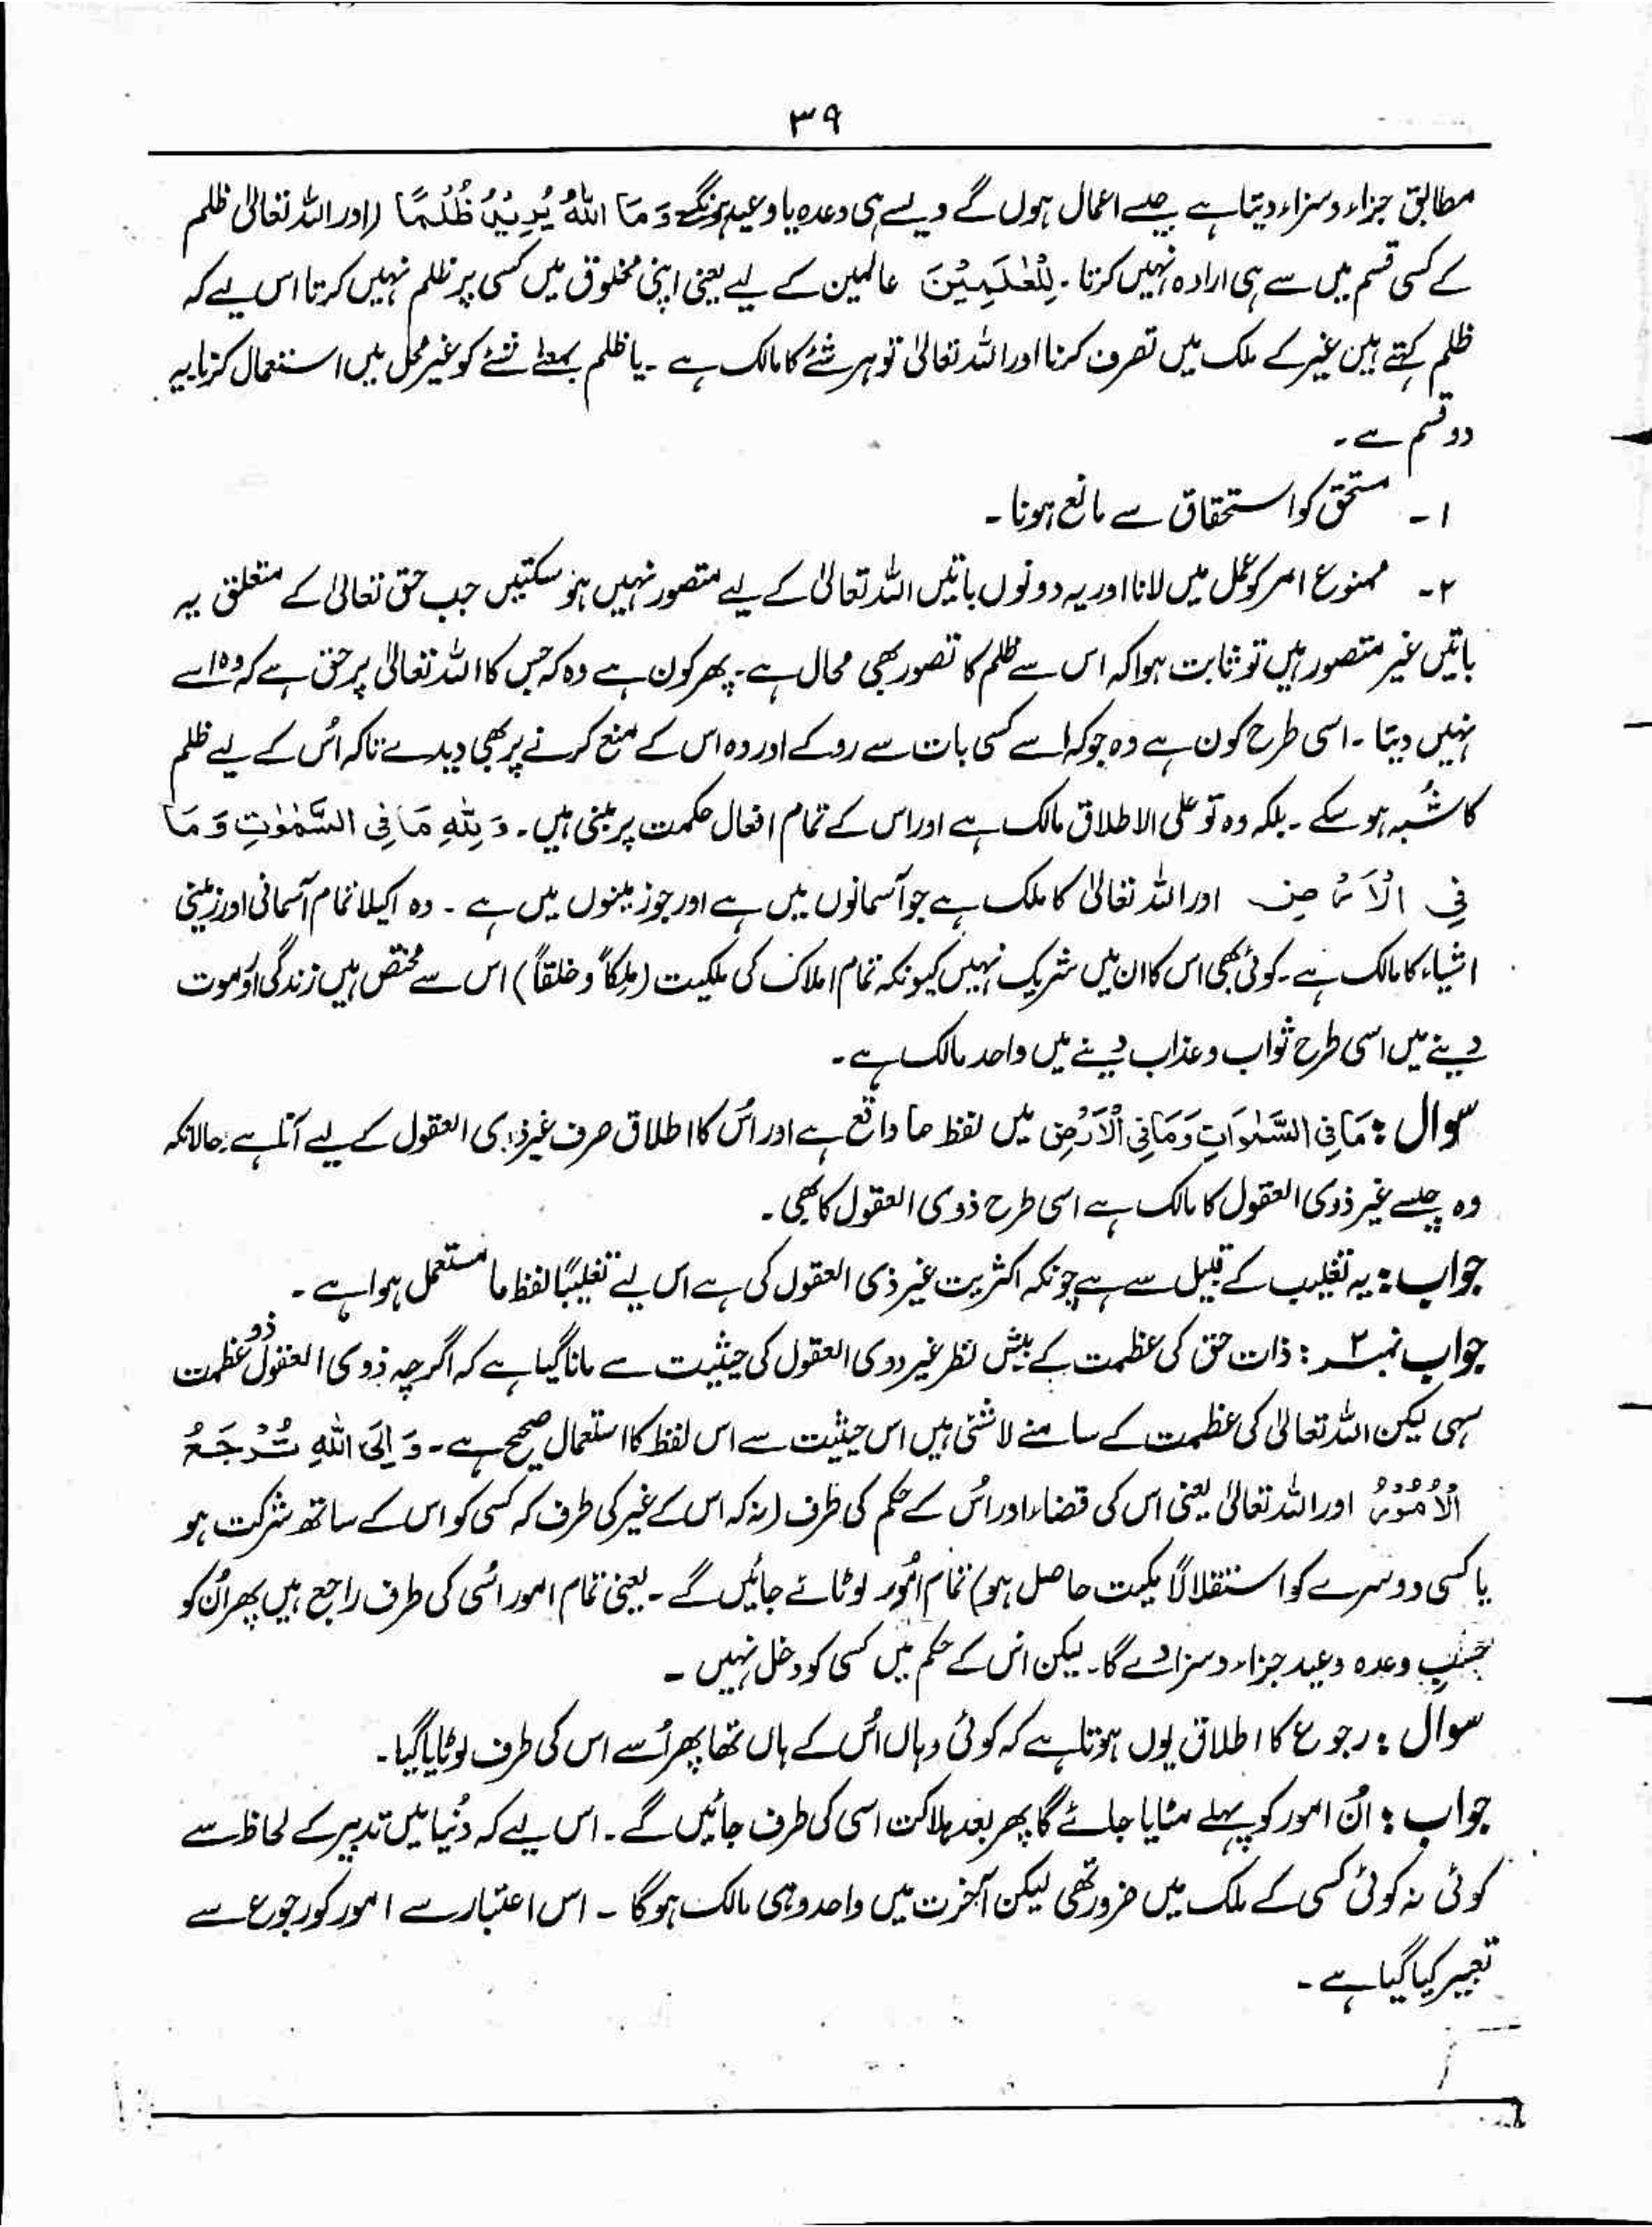 ۳۹
مطابق جزاء و سزاء دیتا ہے جیسے اعمال ہوں گے ویسے ہی وعدہ یا وعید ہونگے وَمَا اللّٰهُ يُرِيْدُ ظُلْمًا (اور اللہ تعالیٰ ظلم
کے کسی قسم میں سے ہی ارادہ نہیں کرتا۔ لِلْعٰلَمِيْنَ عالمین کے لیے یعنی اپنی مخلوق میں کسی پر ظلم نہیں کرتا اس لیے کہ
ظلم کہتے ہیں غیر کے ملک میں تصرف کرنا اور اللہ تعالیٰ تو ہر شئے کا مالک ہے۔ یا ظلم بمعنے شئے کو غیر محل میں استعمال کرنا یہ
دو قسم ہے۔
۱۔ مستحق کو استحقاق سے مانع ہونا۔
۲۔ ممنوع امر کو عمل میں لانا اور یہ دونوں باتیں اللہ تعالیٰ کے لیے متصور نہیں ہو سکتیں جب حق تعالیٰ کے متعلق یہ
باتیں غیر متصور ہیں تو ثابت ہوا کہ اس سے ظلم کا تصور بھی محال ہے۔ پھر کون ہے وہ کہ جس کا اللہ تعالیٰ پر حق ہے کہ وہ اسے
نہیں دیتا۔ اسی طرح کون ہے وہ جو کہ اسے کسی بات سے روکے اور وہ اس کے منع کرنے پر بھی دیدے تاکہ اُس کے لیے ظلم
کا شُبہ ہو سکے۔ بلکہ وہ تو علی الاطلاق مالک ہے اور اس کے تمام افعال حکمت پر مبنی ہیں۔ وَ لِلّٰهِ مَا فِی السَّمٰوٰتِ وَ مَا
فِی الْاَرْضِ اور اللہ تعالیٰ کا ملک ہے جو آسمانوں میں ہے اور جو زمینوں میں ہے۔ وہ اکیلا تمام آسمانی اور زمینی
اشیاء کا مالک ہے۔ کوئی بھی اس کا ان میں شریک نہیں کیونکہ تمام املاک کی ملکیت (مِلکاً و خلقاً) اس سے مختص ہیں زندگی اور موت
دینے میں اسی طرح ثواب و عذاب دینے میں واحد مالک ہے۔
سوال : مَا فِی السَّمٰوَاتِ وَمَا فِی الْاَرْضِ میں لفظ ما واقع ہے اور اُس کا اطلاق صرف غیر ذوی العقول کے لیے آتا ہے۔ حالانکہ
وہ جیسے غیر ذوی العقول کا مالک ہے اسی طرح ذوی العقول کا بھی۔
جواب : یہ تغلیب کے قبیل سے ہے چونکہ اکثریت غیر ذی العقول کی ہے اس لیے تغلیبًا لفظ ما مستعمل ہوا ہے۔
جواب نمبر ۲ : ذات حق کی عظمت کے پیش نظر غیر ذوی العقول کی حیثیت سے مانا گیا ہے کہ اگرچہ ذوی العقول ذو عظمت
سہی لیکن اللہ تعالیٰ کی عظمت کے سامنے لاشئی ہیں اس حیثیت سے اس لفظ کا استعمال صحیح ہے۔ وَ اِلَی اللّٰهِ تُرْجَعُ
الْاُمُوْرُ اور اللہ تعالیٰ یعنی اس کی قضاء اور اُس کے حکم کی طرف (نہ کہ اس کے غیر کی طرف کہ کسی کو اس کے ساتھ شرکت ہو
یا کسی دوسرے کو استقلالًا ملکیت حاصل ہو) تمام اُمُور لوٹائے جائیں گے۔ یعنی تمام امور اُسی کی طرف راجع ہیں پھر اُن کو
حسب وعدہ وعید جزاء و سزا دے گا۔ لیکن اس کے حکم میں کسی کو دخل نہیں۔
سوال : رجوع کا اطلاق یوں ہوتا ہے کہ کوئی وہاں اُس کے ہاں تھا پھر اُسے اس کی طرف لوٹایا گیا۔
جواب : اُن امور کو پہلے مٹایا جائے گا پھر بعد ہلاکت اسی کی طرف جائیں گے۔ اس لیے کہ دُنیا میں تدبیر کے لحاظ سے
کوئی نہ کوئی کسی کے ملک میں ضرور تھی لیکن آخرت میں واحد وہی مالک ہوگا۔ اس اعتبار سے امور کو رجوع سے
تعبیر کیا گیا ہے۔